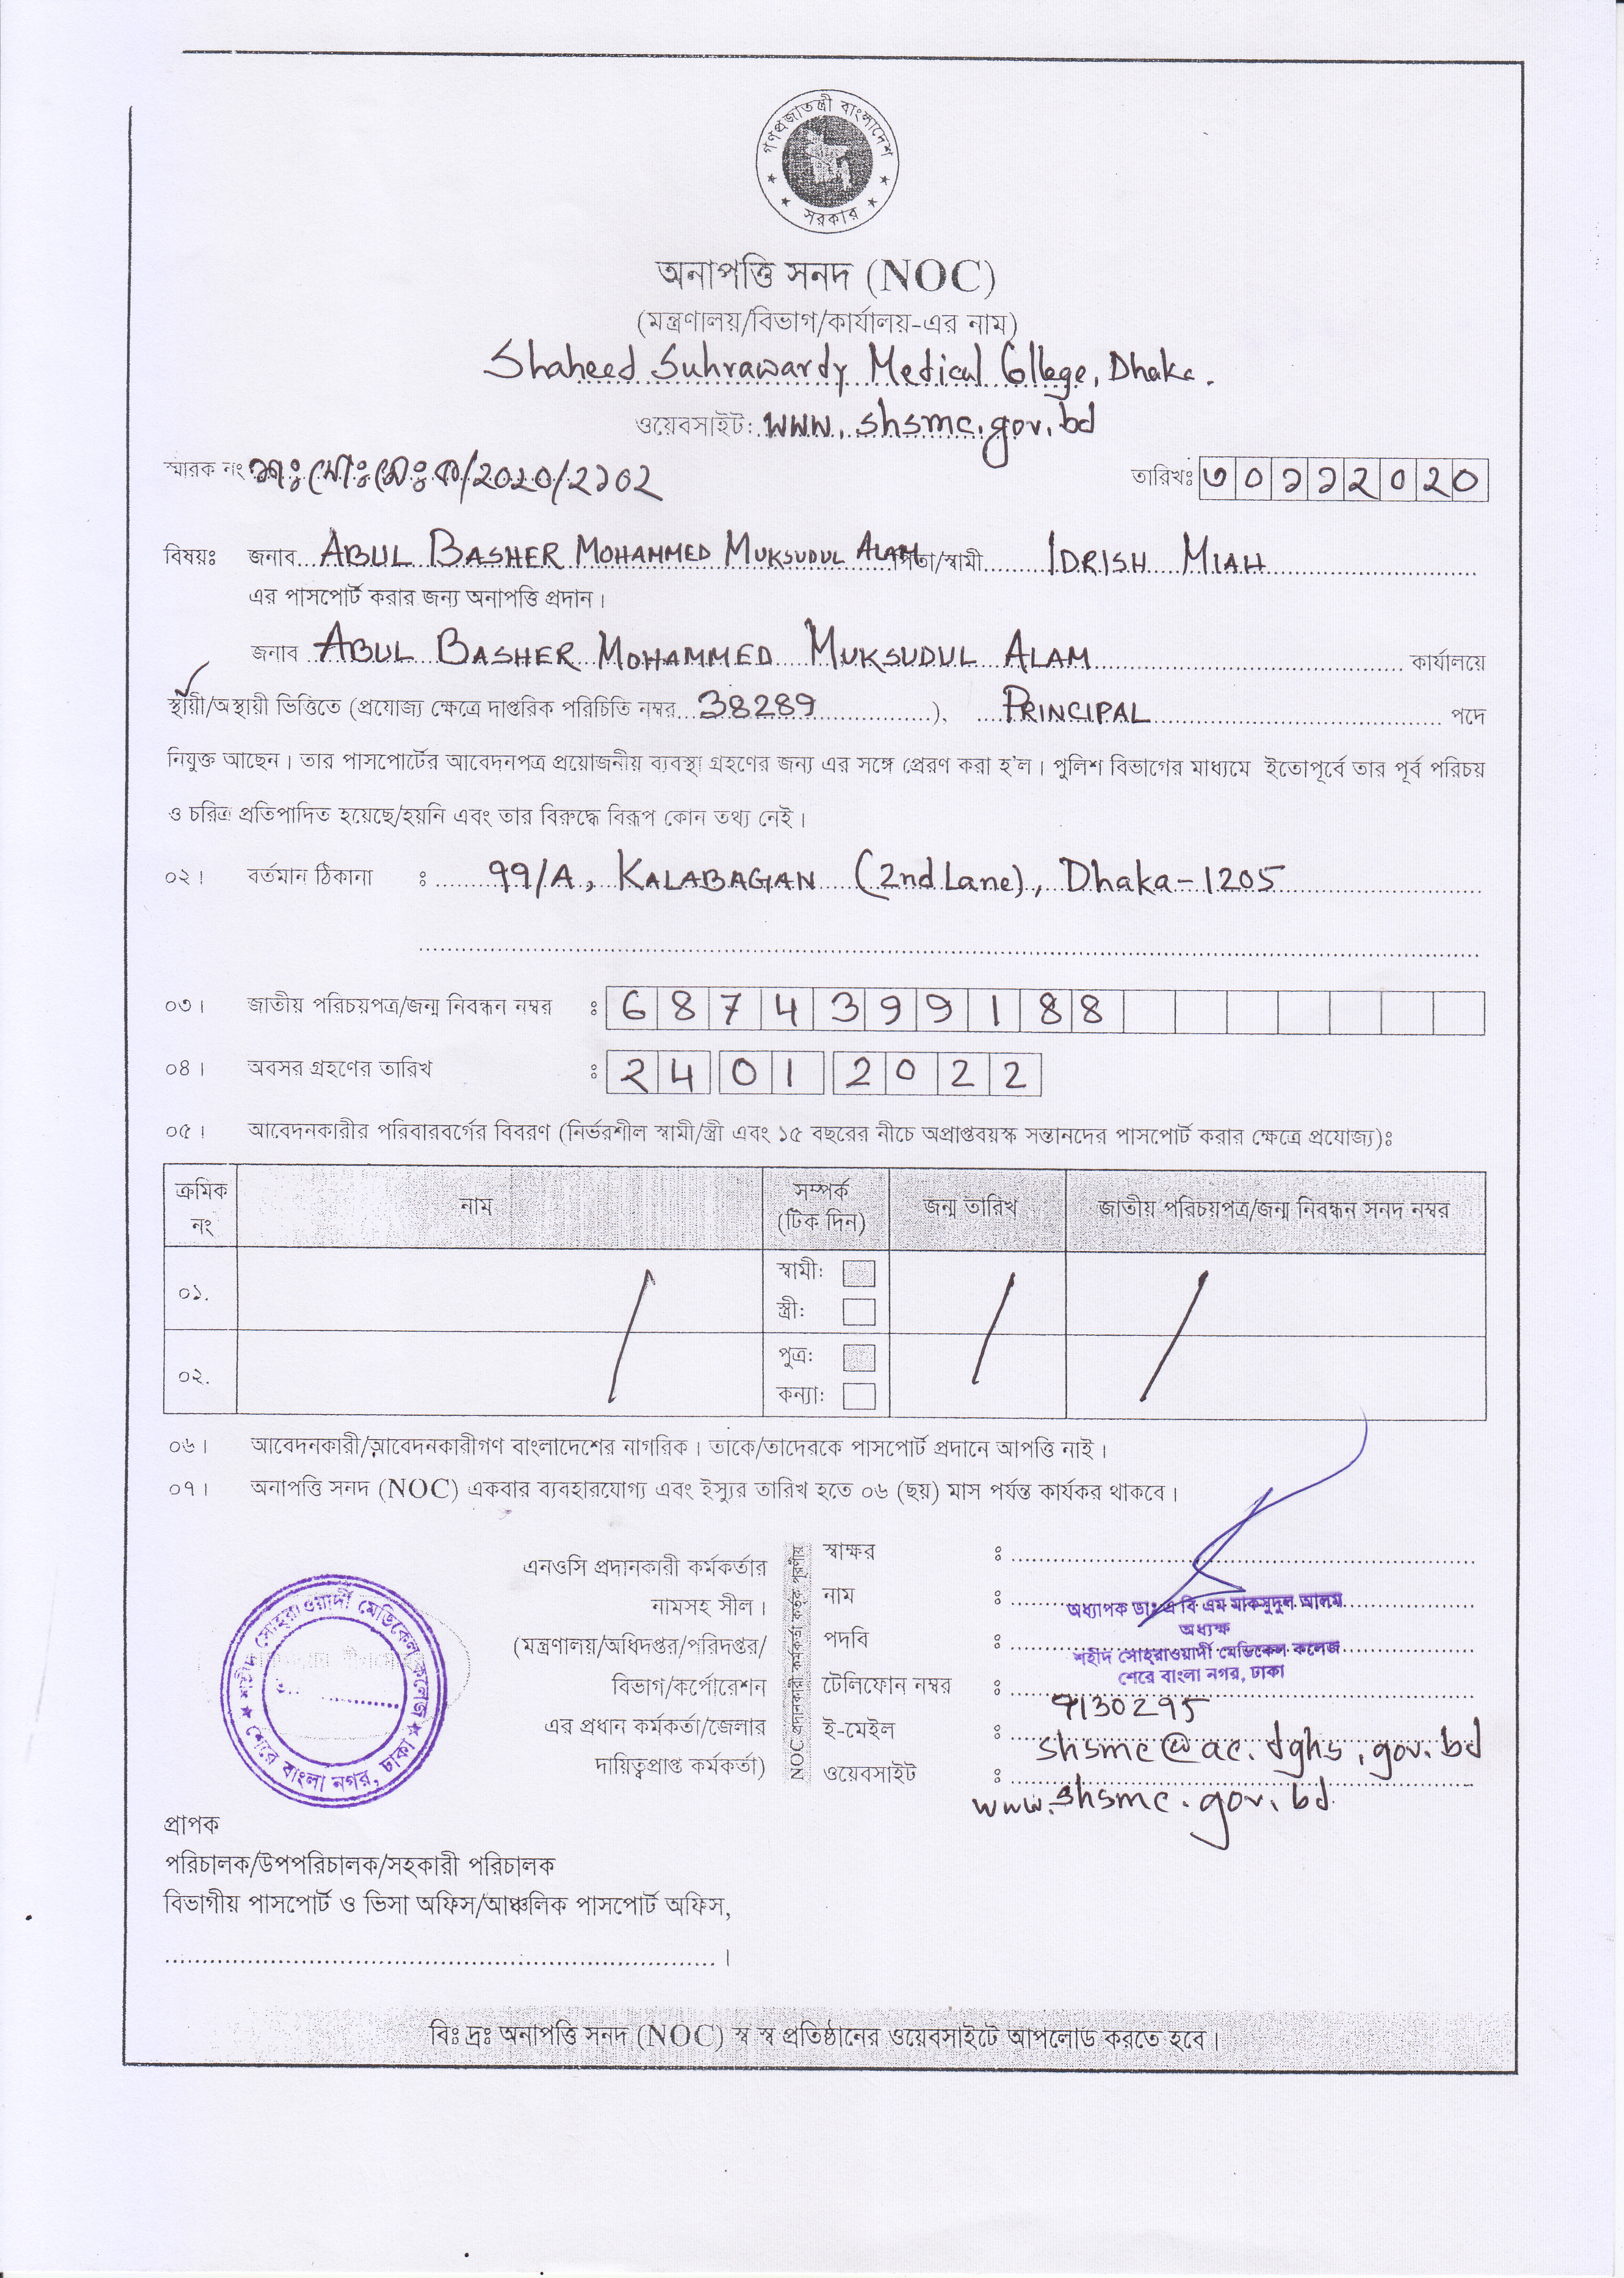 গণপ্রজাতন্ত্রী বাংলাদেশ
সরকার
অনাপত্তি সনদ (NOC)
(মন্ত্রণালয়/বিভাগ/কার্যালয়-এর নাম)
Shaheed Suhrawardy Medical College, Dhaka.
ওয়েবসাইট: www.shsmc.gov.bd
স্মারক নং শঃসোঃমেঃক/2020/2202 তারিখঃ ৩০১১২০২০
বিষয়ঃ জনাব ABUL BASHER MOHAMMED MUKSUDUL ALAM পিতা/স্বামী IDRISH MIAH
এর পাসপোর্ট করার জন্য অনাপত্তি প্রদান।
জনাব ABUL BASHER MOHAMMED MUKSUDUL ALAM কার্যালয়ে
স্থায়ী/অস্থায়ী ভিত্তিতে (প্রযোজ্য ক্ষেত্রে দাপ্তরিক পরিচিতি নম্বর 38289), PRINCIPAL পদে
নিযুক্ত আছেন। তার পাসপোর্টের আবেদনপত্র প্রয়োজনীয় ব্যবস্থা গ্রহণের জন্য এর সঙ্গে প্রেরণ করা হ'ল। পুলিশ বিভাগের মাধ্যমে ইতোপূর্বে তার পূর্ব পরিচয়
ও চরিত্র প্রতিপাদিত হয়েছে/হয়নি এবং তার বিরুদ্ধে বিরূপ কোন তথ্য নেই।
০২। বর্তমান ঠিকানা : 99/A, KALABAGAN (2nd Lane), Dhaka-1205
০৩। জাতীয় পরিচয়পত্র/জন্ম নিবন্ধন নম্বর : 6874399188
০৪। অবসর গ্রহণের তারিখ : 24 01 2022
০৫। আবেদনকারীর পরিবারবর্গের বিবরণ (নির্ভরশীল স্বামী/স্ত্রী এবং ১৫ বছরের নীচে অপ্রাপ্তবয়স্ক সন্তানদের পাসপোর্ট করার ক্ষেত্রে প্রযোজ্য)ঃ
ক্রমিক নং নাম সম্পর্ক (টিক দিন) জন্ম তারিখ জাতীয় পরিচয়পত্র/জন্ম নিবন্ধন সনদ নম্বর
০১. স্বামী:
স্ত্রী:
০২. পুত্র:
কন্যা:
০৬। আবেদনকারী/আবেদনকারীগণ বাংলাদেশের নাগরিক। তাকে/তাদেরকে পাসপোর্ট প্রদানে আপত্তি নাই।
০৭। অনাপত্তি সনদ (NOC) একবার ব্যবহারযোগ্য এবং ইস্যুর তারিখ হতে ০৬ (ছয়) মাস পর্যন্ত কার্যকর থাকবে।
এনওসি প্রদানকারী কর্মকর্তার
নামসহ সীল।
(মন্ত্রণালয়/অধিদপ্তর/পরিদপ্তর/
বিভাগ/কর্পোরেশন
এর প্রধান কর্মকর্তা/জেলার
দায়িত্বপ্রাপ্ত কর্মকর্তা)
NOC প্রদানকারী কর্মকর্তা কর্তৃক পূরণীয়
স্বাক্ষর :
নাম : অধ্যাপক ডাঃ এ বি এম মাকসুদুল আলম
অধ্যক্ষ
পদবি : শহীদ সোহরাওয়ার্দী মেডিকেল কলেজ
শেরে বাংলা নগর, ঢাকা
টেলিফোন নম্বর : 9130295
ই-মেইল : shsmc@ac.dghs.gov.bd
ওয়েবসাইট : www.shsmc.gov.bd
শহীদ সোহরাওয়ার্দী মেডিকেল কলেজ
শেরে বাংলা নগর, ঢাকা
প্রাপক
পরিচালক/উপপরিচালক/সহকারী পরিচালক
বিভাগীয় পাসপোর্ট ও ভিসা অফিস/আঞ্চলিক পাসপোর্ট অফিস,
।
বিঃ দ্রঃ অনাপত্তি সনদ (NOC) স্ব স্ব প্রতিষ্ঠানের ওয়েবসাইটে আপলোড করতে হবে।